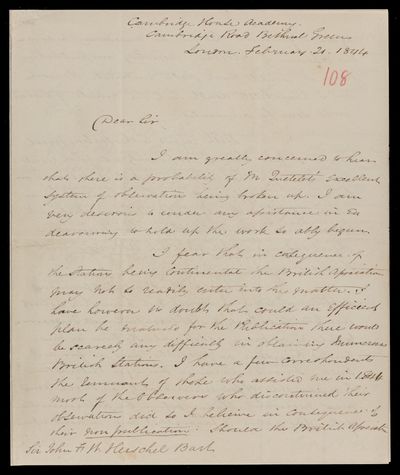 Cambridge House Academy.
Cambridge Road Bethnal Green
London. February. 21. 1844
108
Dear Sir
I am greatly concerned to hear
that there is a probability of M. Quetelet's excellent
system of observation being broken up. I am
very desirous to render any assistance in en
deavouring to hold up the work so ably begun.
I fear that in consequence of
the Stations being Continental the British Association
may not so readily enter into the matter. I
have however no doubt that could an efficient
plan be for the Publication there would
be scarcely any difficulty in obtaining numerous
British Stations. I have a few correspondents
the remnants of those who assisted me in
most of the Observers who discontinued their
observations did so I believe in consequence of
their non publication. Should the British Associatn
Sir John F. W. Herschel Bart